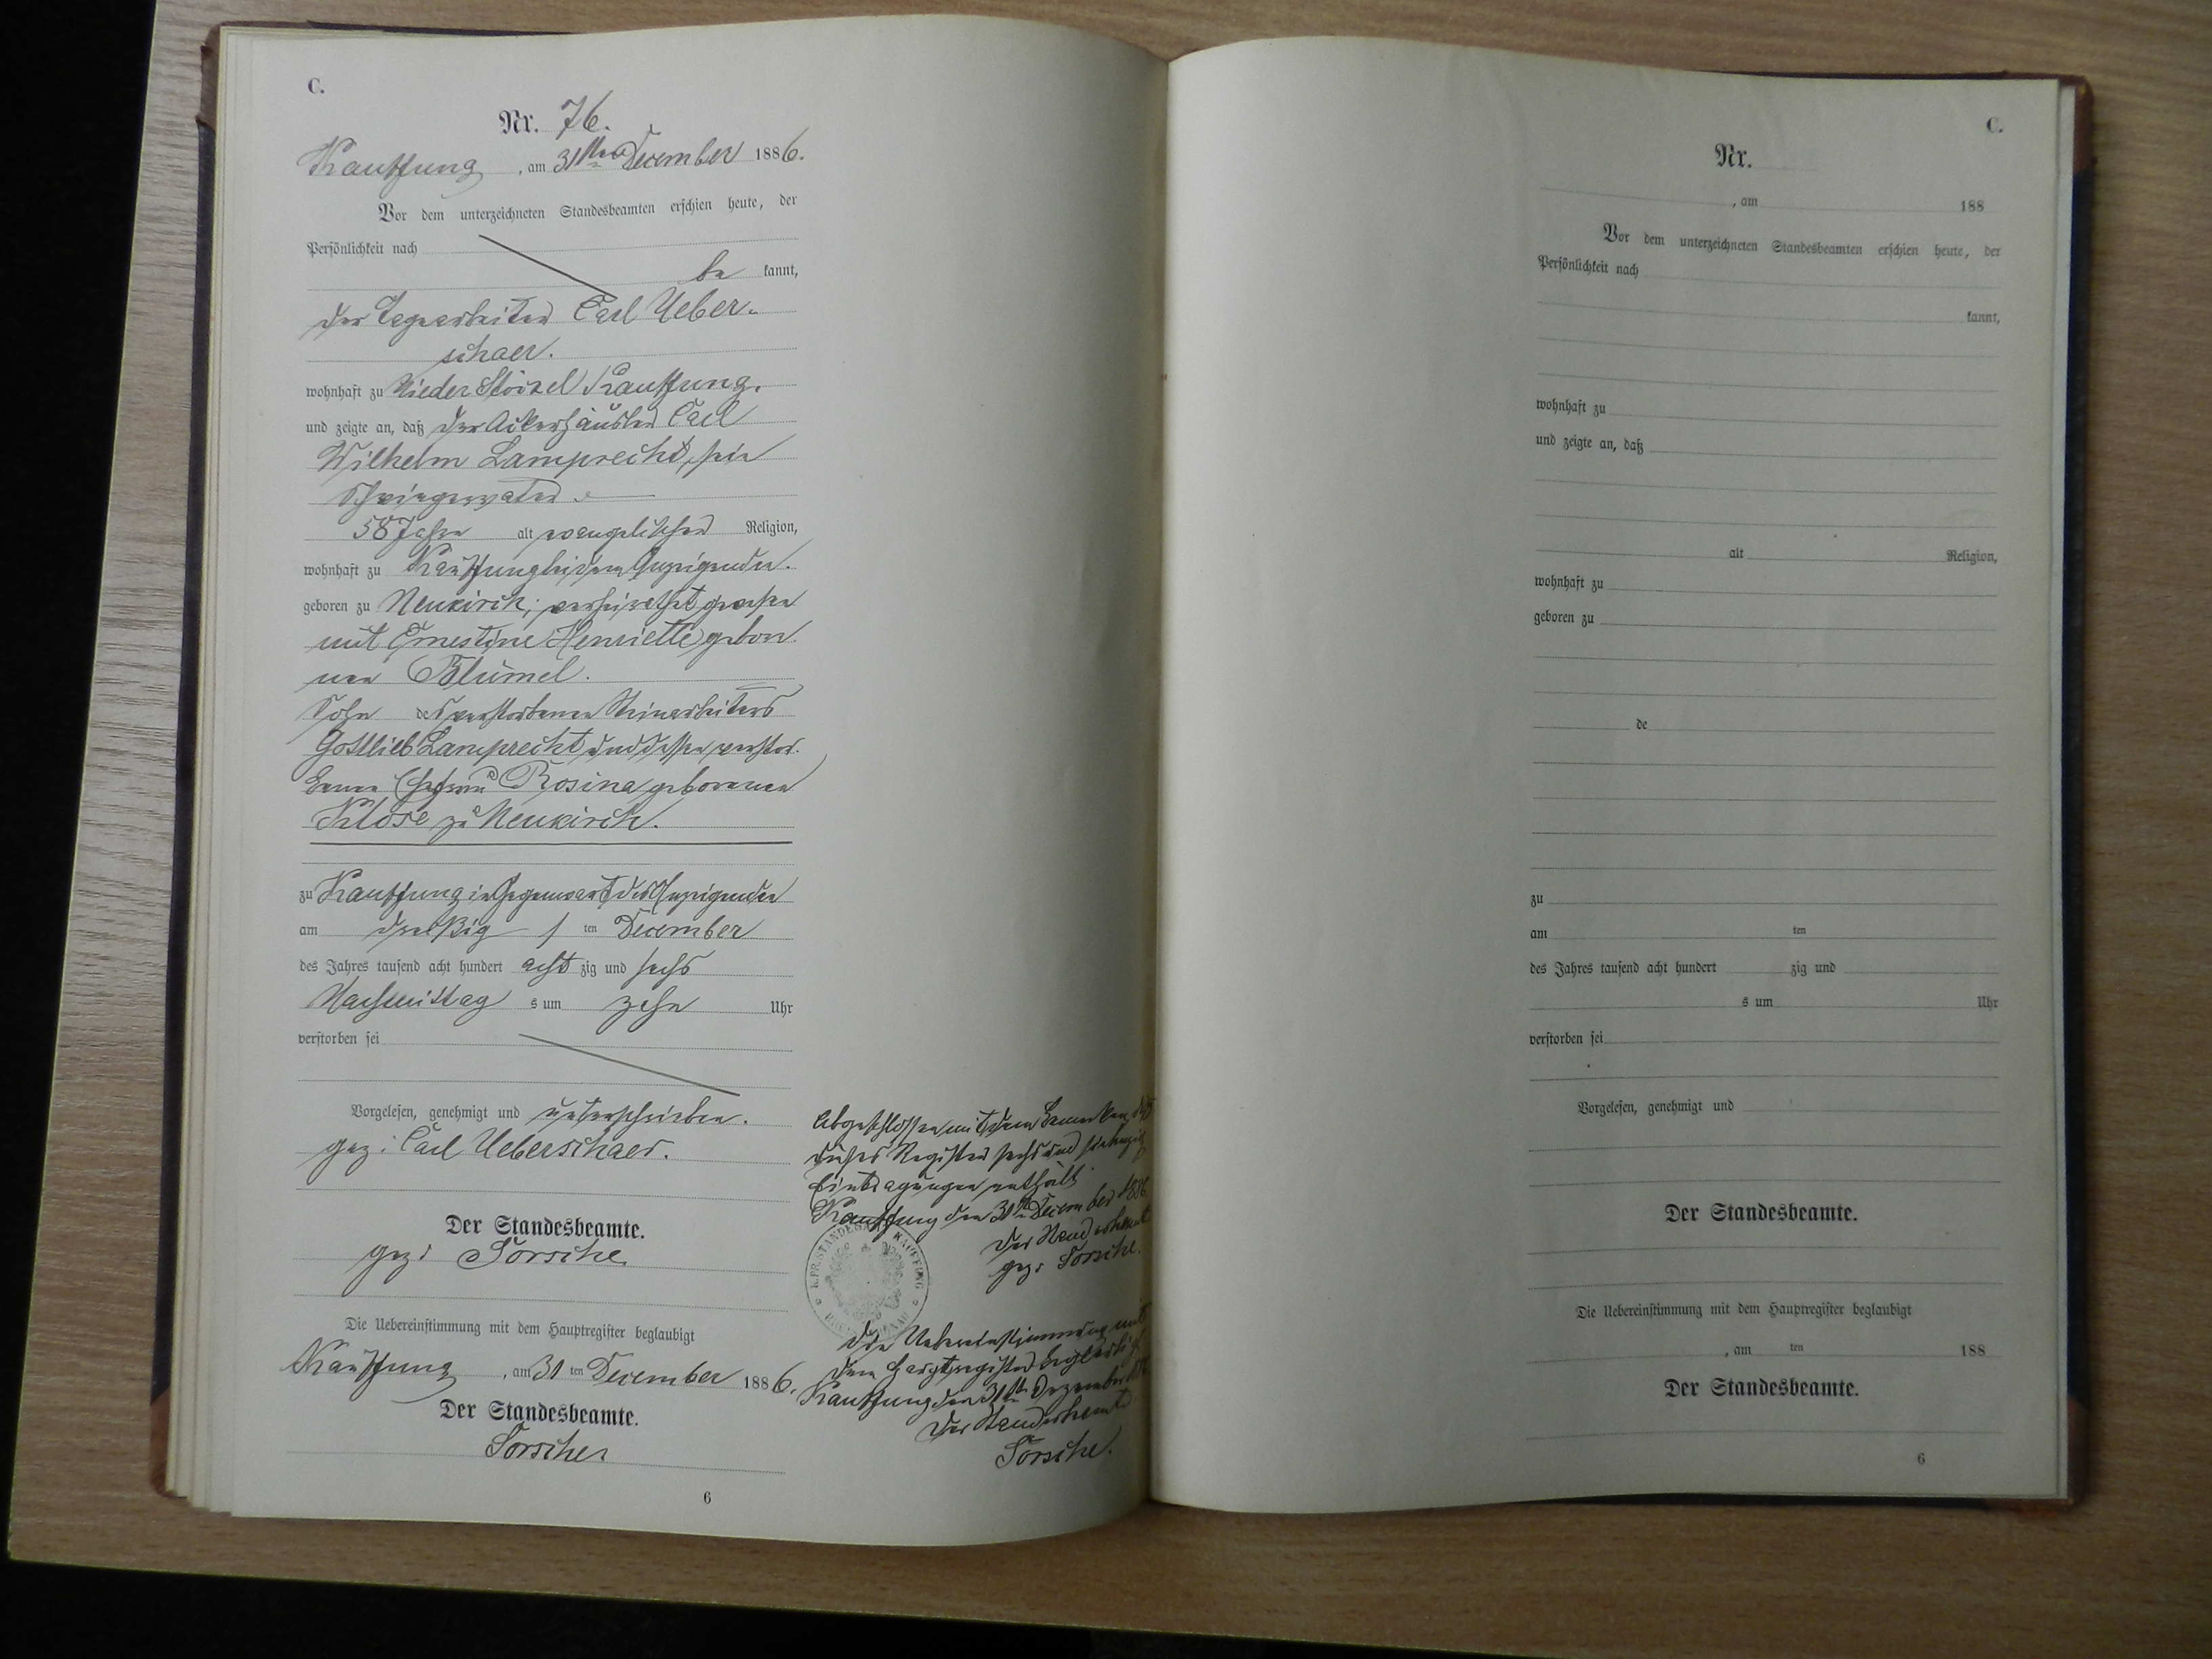 C.
Nr. 76.
Kauffung, am 31ten December 1886.
Vor dem unterzeichneten Standesbeamten erschien heute, der
Persönlichkeit nach
be kannt,
der Tagearbeiter Carl Ueber-
schaer.
wohnhaft zu Nieder Stöckel Kauffung.
und zeigte an, daß der Ackerhäusler Carl
Wilhelm Lamprecht, sein
Schwiegervater
58 Jahre alt evangelischer Religion,
wohnhaft zu Kauffung bei dem Anzeigenden.
geboren zu Neukirch; verheirathet gewesen
mit Ernestine Henriette gebor
nen Blümel.
Sohn des verstorbenen Steinarbeiters
Gottlieb Lamprecht und dessen verstor-
benen Ehefrau Rosina geborenen
Klose zu Neukirch.
zu Kauffung in Gegenwart des Anzeigenden
am dreißig ten December
des Jahres tausend acht hundert acht zig und sechs
Nachmittag s um zehn Uhr
verstorben sei
Vorgelesen, genehmigt und unterschrieben.
gez: Carl Ueberschaer.
Der Standesbeamte.
gez: Torsche
Die Uebereinstimmung mit dem Hauptregister beglaubigt
Kauffung, am 31 ten December 1886.
Der Standesbeamte.
Torsche
6
Abgeschlossen mit dem Bemerken, daß
dieses Register sechs und siebenzig
Eintragungen enthält
Kauffung den 31ten December 1886
Der Standesbeamte
gez: Torsche.
K. PR. STANDESAMT KAUFFUNG
Die Uebereinstimmung mit
dem Hauptregister beglaubigt
Kauffung den 31ten Dezember
Der Standesbeamte
Torsche.
C.
Nr.
, am 188
Vor dem unterzeichneten Standesbeamten erschien heute, der
Persönlichkeit nach
kannt,
wohnhaft zu
und zeigte an, daß
alt Religion,
wohnhaft zu
geboren zu
de
zu
am ten
des Jahres tausend acht hundert zig und
s um Uhr
verstorben sei
Vorgelesen, genehmigt und
Der Standesbeamte.
Die Uebereinstimmung mit dem Hauptregister beglaubigt
, am ten 188
Der Standesbeamte.
6